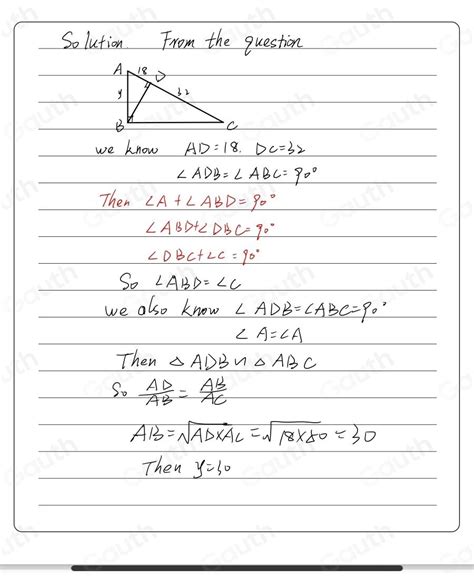 Solution. From the question
A 18 D
y 32
B C
we know AD=18. DC=32
∠ADB=∠ABC=90°
Then ∠A+∠ABD=90°
∠ABD+∠DBC=90°
∠DBC+∠C=90°
So ∠ABD=∠C
we also know ∠ADB=∠ABC=90°
∠A=∠A
Then △ADB∽△ABC
So AD/AB=AB/AC
AB=√AD×AC=√18×50=30
Then y=30
Gauth